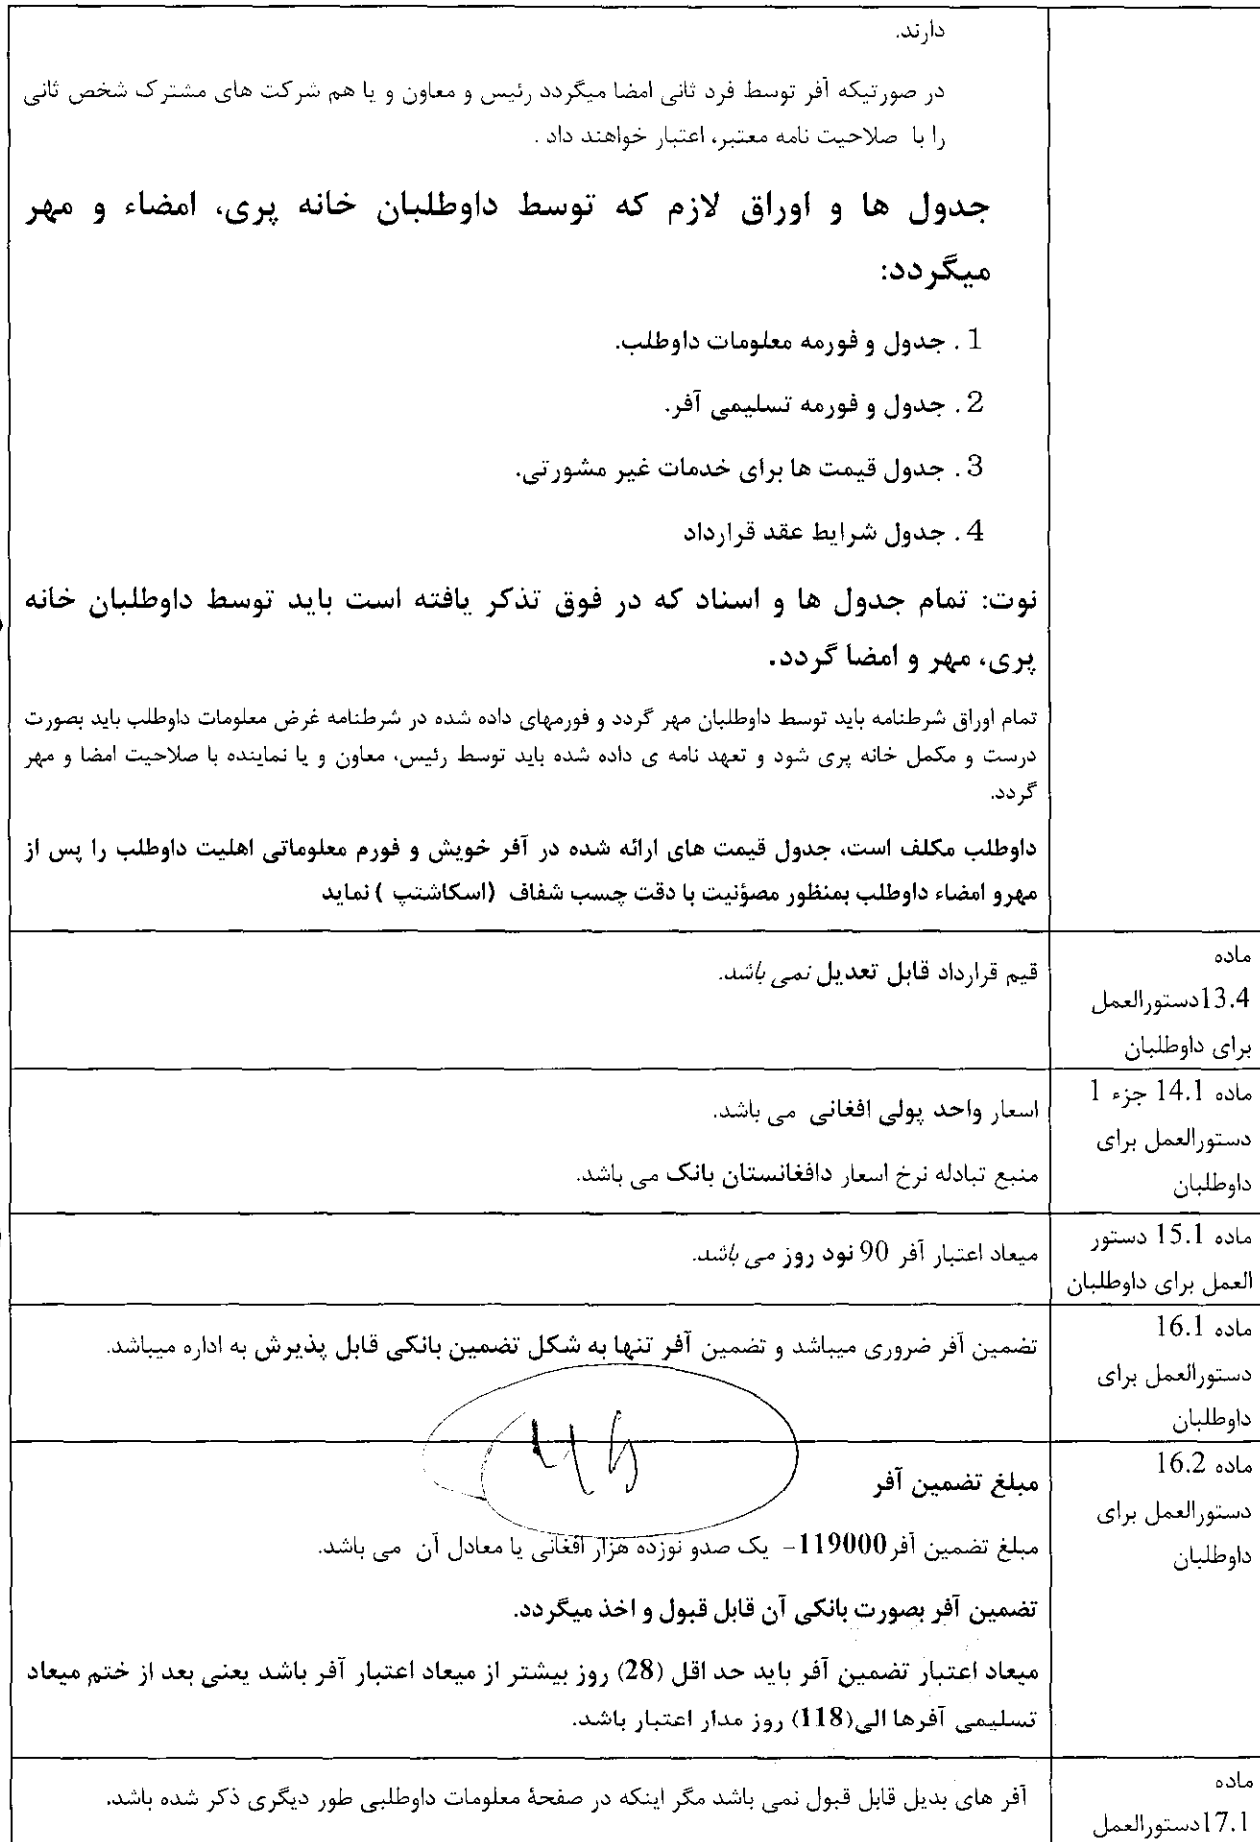 دارند.
در صورتیکه آفر توسط فرد ثانی امضا میگردد رئیس و معاون و یا هم شرکت های مشترک شخص ثانی
را با صلاحیت نامه معتبر، اعتبار خواهند داد .
جدول ها و اوراق لازم که توسط داوطلبان خانه پری، امضاء و مهر
میگردد:
1. جدول و فورمه معلومات داوطلب.
2. جدول و فورمه تسلیمی آفر.
3. جدول قیمت ها برای خدمات غیر مشورتی.
4. جدول شرایط عقد قرارداد
نوت: تمام جدول ها و اسناد که در فوق تذکر یافته است باید توسط داوطلبان خانه
پری، مهر و امضا گردد.
تمام اوراق شرطنامه باید توسط داوطلبان مهر گردد و فورمهای داده شده در شرطنامه غرض معلومات داوطلب باید بصورت
درست و مکمل خانه پری شود و تعهد نامه ی داده شده باید توسط رئیس، معاون و یا نماینده با صلاحیت امضا و مهر
گردد.
داوطلب مکلف است، جدول قیمت های ارائه شده در آفر خویش و فورم معلوماتی اهلیت داوطلب را پس از
مهرو امضاء داوطلب بمنظور مصؤنیت با دقت چسب شفاف (اسکاشتپ ) نماید
ماده
13.4دستورالعمل
برای داوطلبان
قیم قرارداد قابل تعدیل نمی باشد.
ماده 14.1 جزء 1
دستورالعمل برای
داوطلبان
اسعار واحد پولی افغانی می باشد.
منبع تبادله نرخ اسعار دافغانستان بانک می باشد.
ماده 15.1 دستور
العمل برای داوطلبان
میعاد اعتبار آفر 90 نود روز می باشد.
ماده 16.1
دستورالعمل برای
داوطلبان
تضمین آفر ضروری میباشد و تضمین آفر تنها به شکل تضمین بانکی قابل پذیرش به اداره میباشد.
ماده 16.2
دستورالعمل برای
داوطلبان
مبلغ تضمین آفر
مبلغ تضمین آفر119000- یک صدو نوزده هزار افغانی یا معادل آن می باشد.
تضمین آفر بصورت بانکی آن قابل قبول و اخذ میگردد.
میعاد اعتبار تضمین آفر باید حد اقل (28) روز بیشتر از میعاد اعتبار آفر باشد یعنی بعد از ختم میعاد
تسلیمی آفرها الی(118) روز مدار اعتبار باشد.
ماده
17.1دستورالعمل
آفر های بدیل قابل قبول نمی باشد مگر اینکه در صفحۀ معلومات داوطلبی طور دیگری ذکر شده باشد.